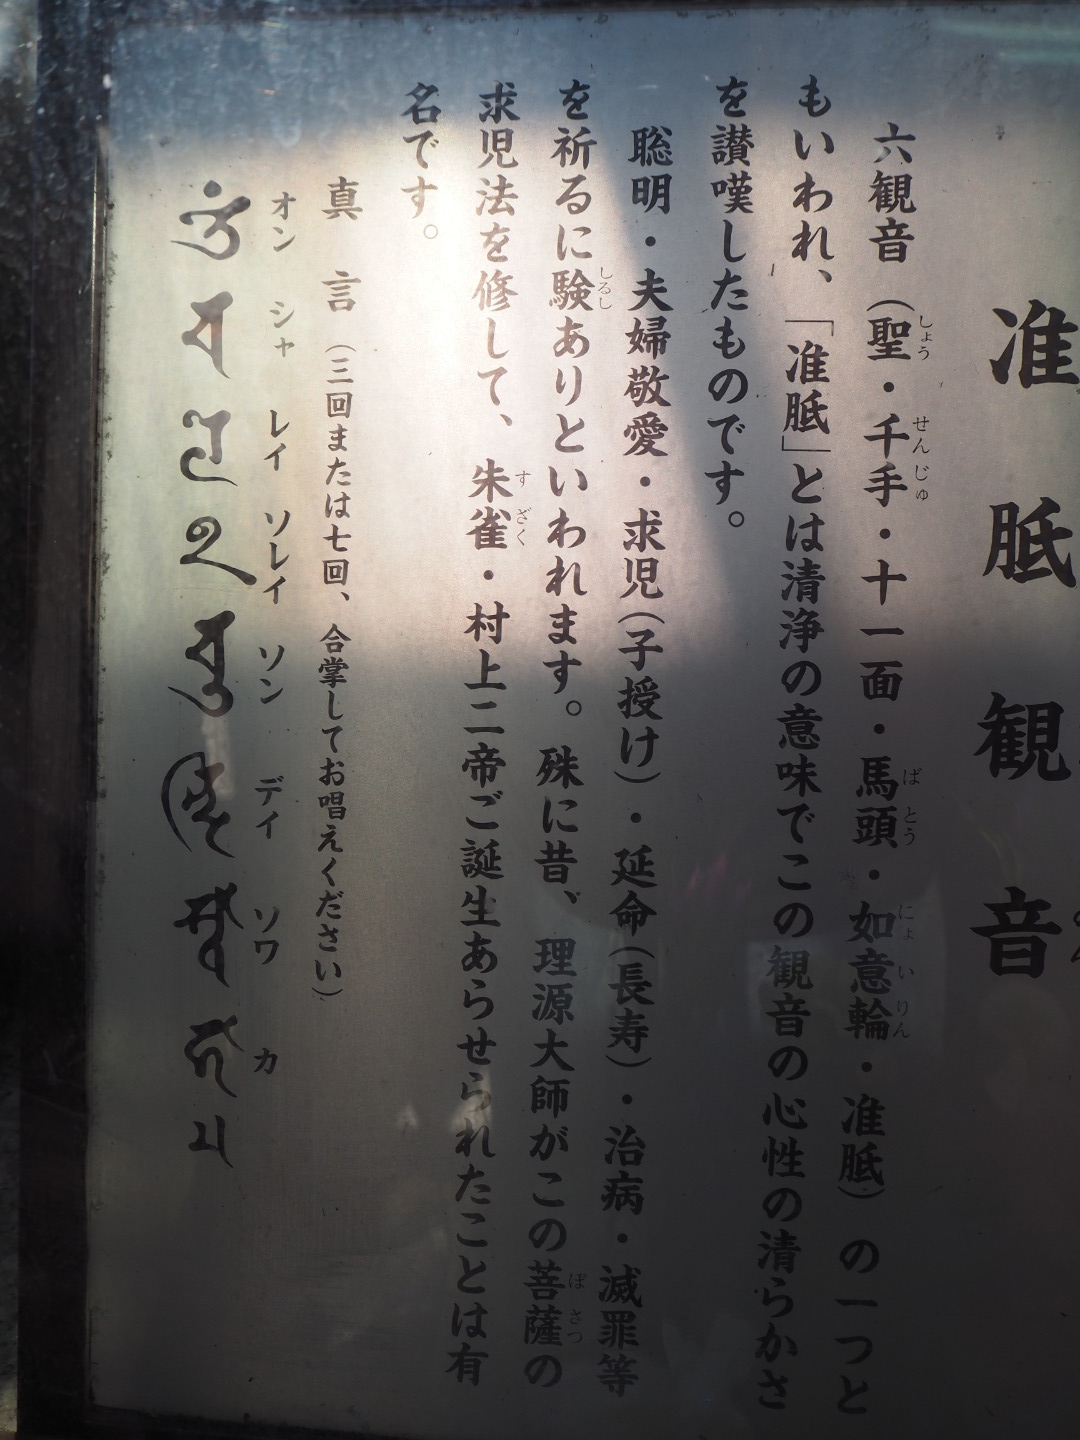 准胝観音
六観音（聖・千手・十一面・馬頭・如意輪・准胝）の一つと
もいわれ、「准胝」とは清浄の意味でこの観音の心性の清らかさ
を讃嘆したものです。
聡明・夫婦敬愛・求児（子授け）・延命（長寿）・治病・滅罪等
を祈るに験ありといわれます。殊に昔、理源大師がこの菩薩の
求児法を修して、朱雀・村上二帝ご誕生あらせられたことは有
名です。
真言（三回または七回、合掌してお唱えください）
オン シャ レイ ソレイ ソン デイ ソワ カ